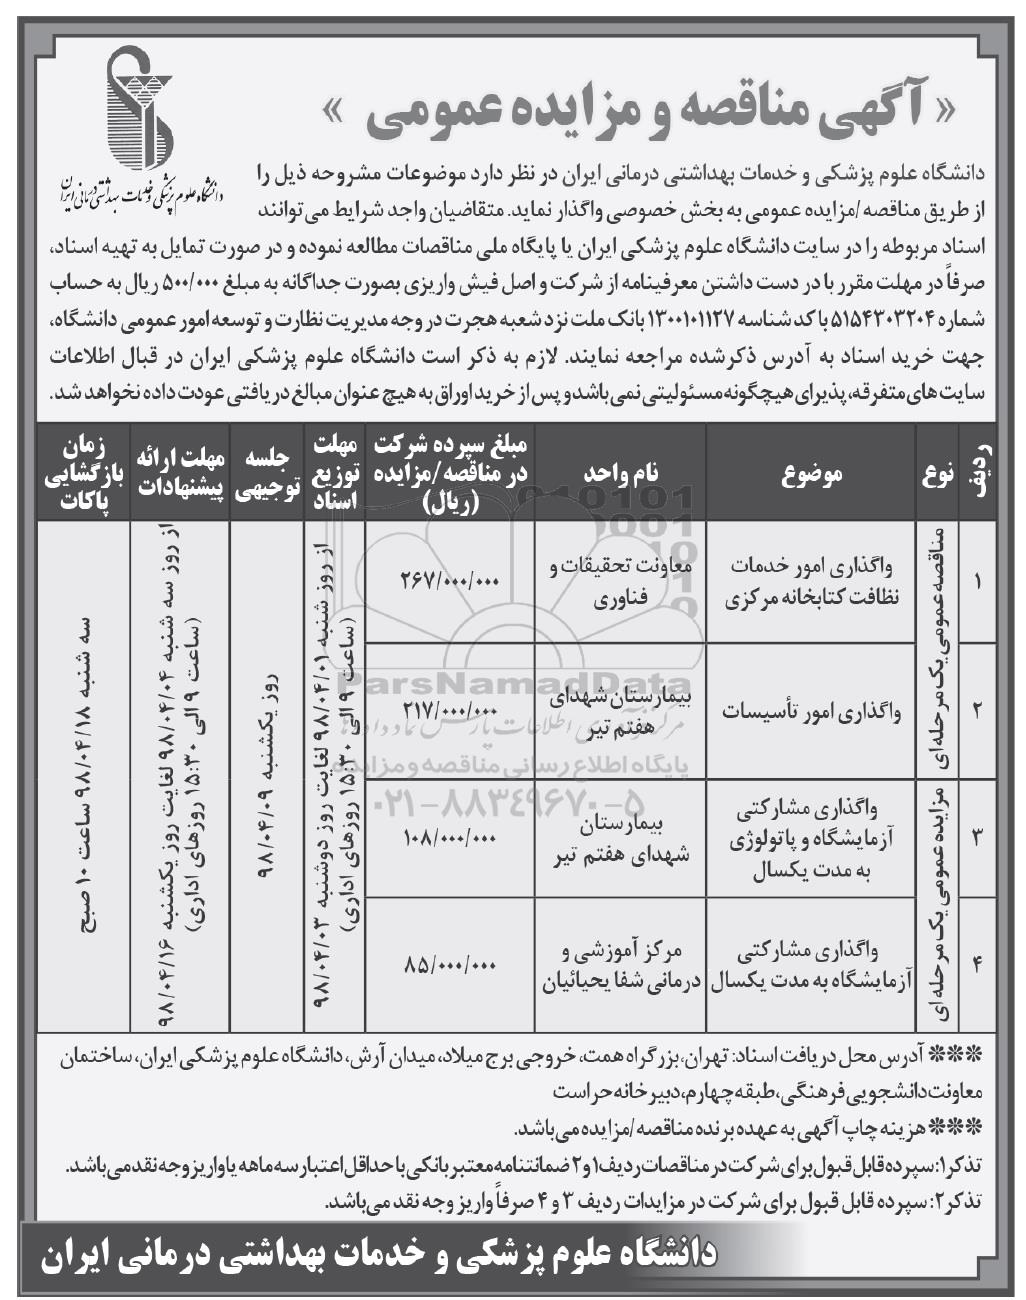 « آگهی مناقصه و مزایده عمومی »
دانشگاه علوم پزشکی و خدمات بهداشتی درمانی ایران
دانشگاه علوم پزشکی و خدمات بهداشتی درمانی ایران در نظر دارد موضوعات مشروحه ذیل را
از طریق مناقصه/مزایده عمومی به بخش خصوصی واگذار نماید. متقاضیان واجد شرایط می‌توانند
اسناد مربوطه را در سایت دانشگاه علوم پزشکی ایران یا پایگاه ملی مناقصات مطالعه نموده و در صورت تمایل به تهیه اسناد،
صرفاً در مهلت مقرر با در دست داشتن معرفینامه از شرکت و اصل فیش واریزی بصورت جداگانه به مبلغ ۵۰۰/۰۰۰ ریال به حساب
شماره ۵۱۵۴۳۰۳۲۰۴ با کد شناسه ۱۳۰۰۱۰۱۱۲۷ بانک ملت نزد شعبه هجرت در وجه مدیریت نظارت و توسعه امور عمومی دانشگاه،
جهت خرید اسناد به آدرس ذکرشده مراجعه نمایند. لازم به ذکر است دانشگاه علوم پزشکی ایران در قبال اطلاعات
سایت های متفرقه، پذیرای هیچگونه مسئولیتی نمی‌باشد و پس از خرید اوراق به هیچ عنوان مبالغ دریافتی عودت داده نخواهد شد.
ردیف
نوع
موضوع
نام واحد
مبلغ سپرده شرکت
در مناقصه/مزایده
(ریال)
مهلت
توزیع
اسناد
جلسه
توجیهی
مهلت ارائه
پیشنهادات
زمان
بازگشایی
پاکات
۱
مناقصه عمومی یک مرحله ای
واگذاری امور خدمات
نظافت کتابخانه مرکزی
معاونت تحقیقات و
فناوری
۲۶۷/۰۰۰/۰۰۰
از روز شنبه ۹۸/۰۴/۰۱ لغایت روز دوشنبه ۹۸/۰۴/۰۳
(ساعت ۹ الی ۱۵:۳۰ روزهای اداری)
روز یکشنبه ۹۸/۰۴/۰۹
از روز سه شنبه ۹۸/۰۴/۰۴ لغایت روز یکشنبه ۹۸/۰۴/۱۶
(ساعت ۹ الی ۱۵:۳۰ روزهای اداری)
سه شنبه ۹۸/۰۴/۱۸ ساعت ۱۰ صبح
۲
واگذاری امور تأسیسات
بیمارستان شهدای
هفتم تیر
۲۱۷/۰۰۰/۰۰۰
۳
مزایده عمومی یک مرحله ای
واگذاری مشارکتی
آزمایشگاه و پاتولوژی
به مدت یکسال
بیمارستان
شهدای هفتم تیر
۱۰۸/۰۰۰/۰۰۰
۴
واگذاری مشارکتی
آزمایشگاه به مدت یکسال
مرکز آموزشی و
درمانی شفا یحیائیان
۸۵/۰۰۰/۰۰۰
ParsNamadData
مرکز فرآوری اطلاعات پارس نماد داده ها
پایگاه اطلاع رسانی مناقصه و مزایده
۰۲۱-۸۸۳۴۹۶۷۰-۵
*** آدرس محل دریافت اسناد: تهران، بزرگراه همت، خروجی برج میلاد، میدان آرش، دانشگاه علوم پزشکی ایران، ساختمان
معاونت دانشجویی فرهنگی، طبقه چهارم، دبیرخانه حراست
*** هزینه چاپ آگهی به عهده برنده مناقصه/مزایده می‌باشد.
تذکر۱: سپرده قابل قبول برای شرکت در مناقصات ردیف ۱ و ۲ ضمانتنامه معتبر بانکی با حداقل اعتبار سه ماهه یا واریز وجه نقد می‌باشد.
تذکر۲: سپرده قابل قبول برای شرکت در مزایدات ردیف ۳ و ۴ صرفاً واریز وجه نقد می‌باشد.
دانشگاه علوم پزشکی و خدمات بهداشتی درمانی ایران